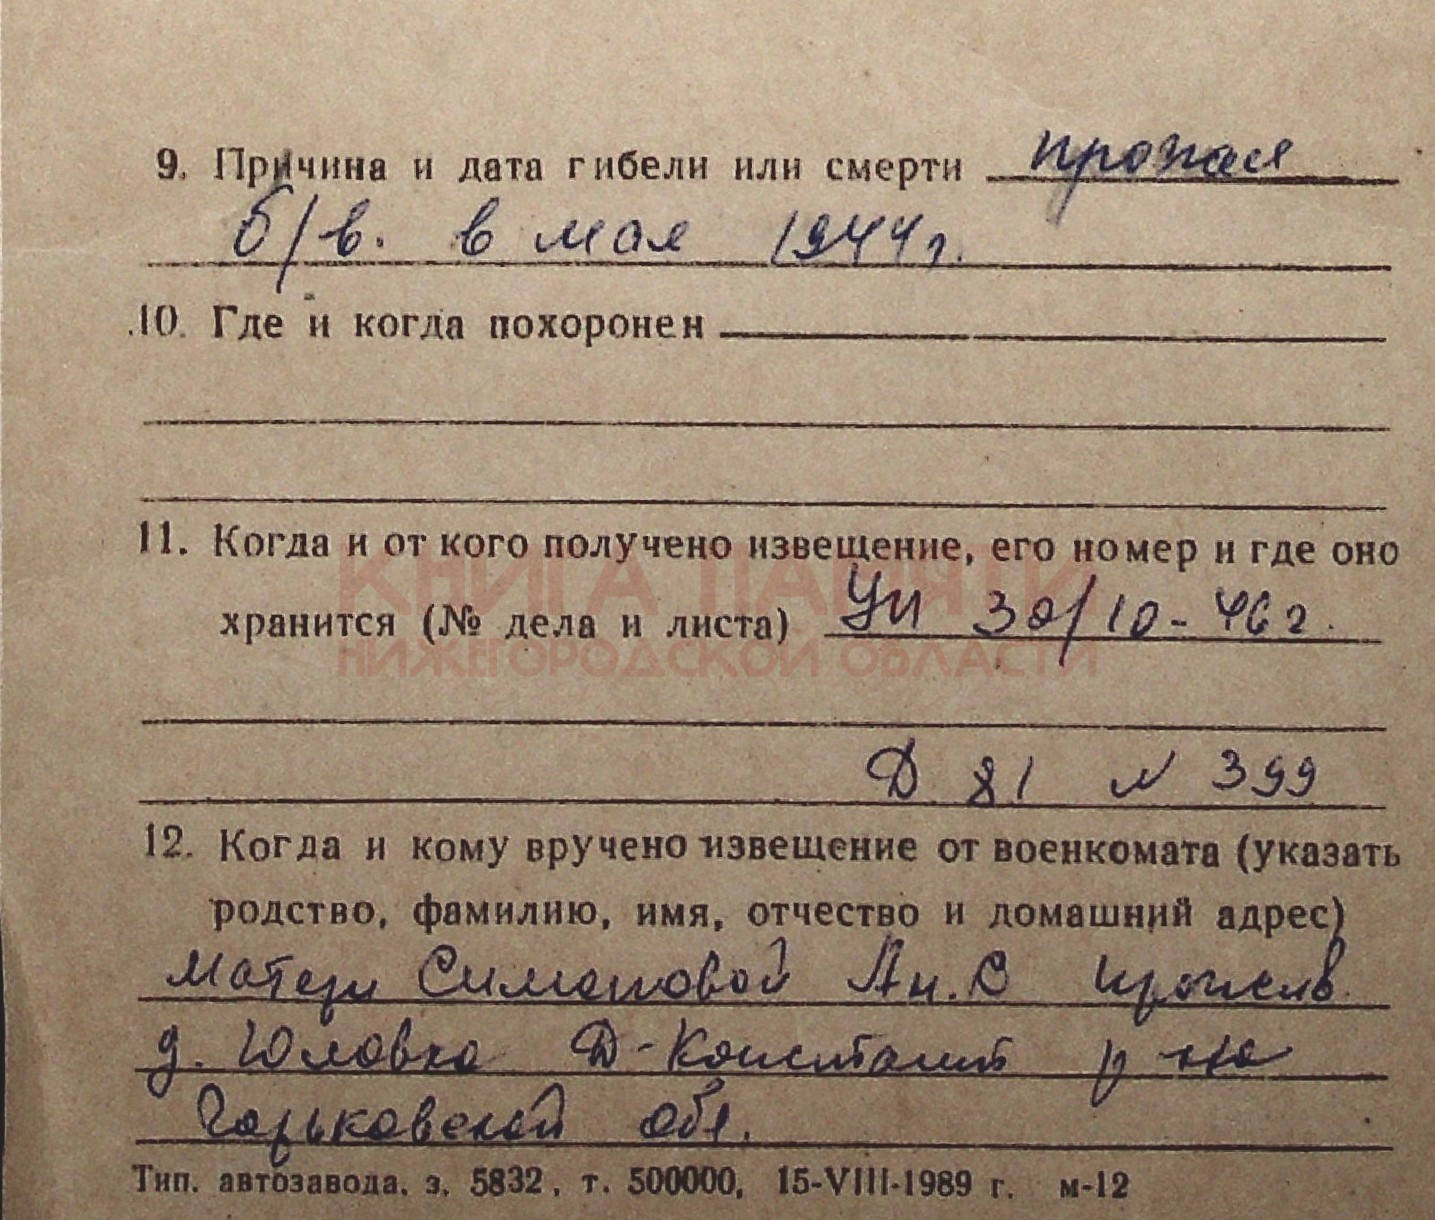 9. Причина и дата гибели или смерти пропал
б/в. в мае 1944 г.
10. Где и когда похоронен
11. Когда и от кого получено извещение, его номер и где оно
КНИГА ПАМЯТИ
хранится (№ дела и листа) УИ 30/10-46 г.
НИЖЕГОРОДСКОЙ ОБЛАСТИ
Д 81 N 399
12. Когда и кому вручено извещение от военкомата (указать
родство, фамилию, имя, отчество и домашний адрес)
Матери Симоновой Ан. С прожив.
д. Юловка Д-Констант р-на
Горьковской обл.
Тип. автозавода. з. 5832, т. 500000, 15-VIII-1989 г. м-12